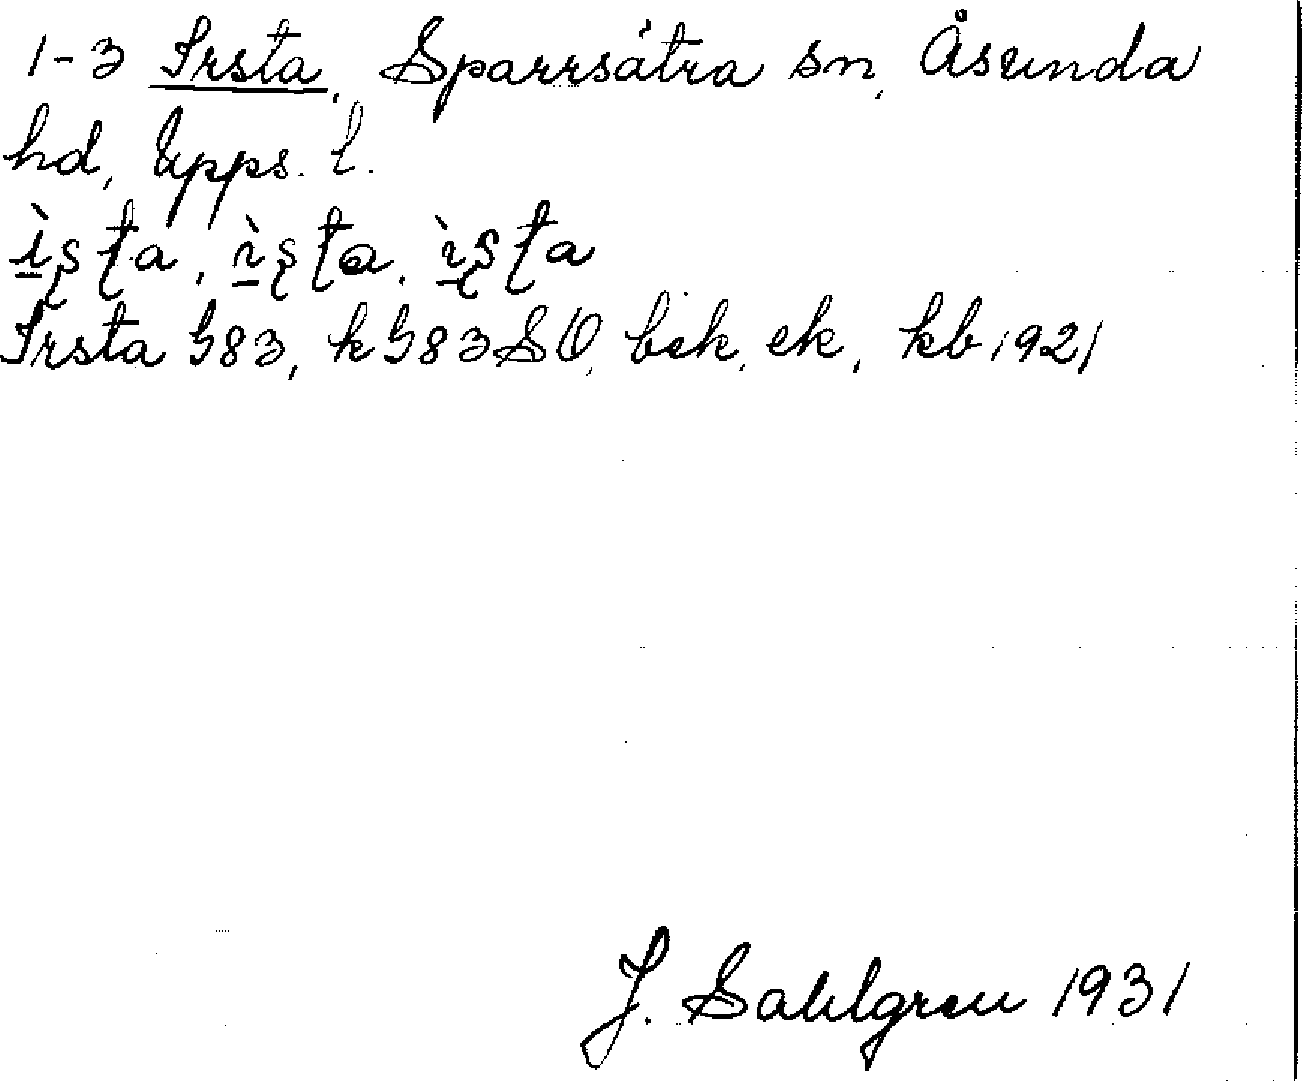 1-3 Irsta, Sparrsätra sn, Åsunda
hd, Upps. l.
ìʂʈa, ìʂʈa, ìʂʈa
Irsta G83, kG83SO, bek, ek, kb 1921
J. Sahlgren 1931